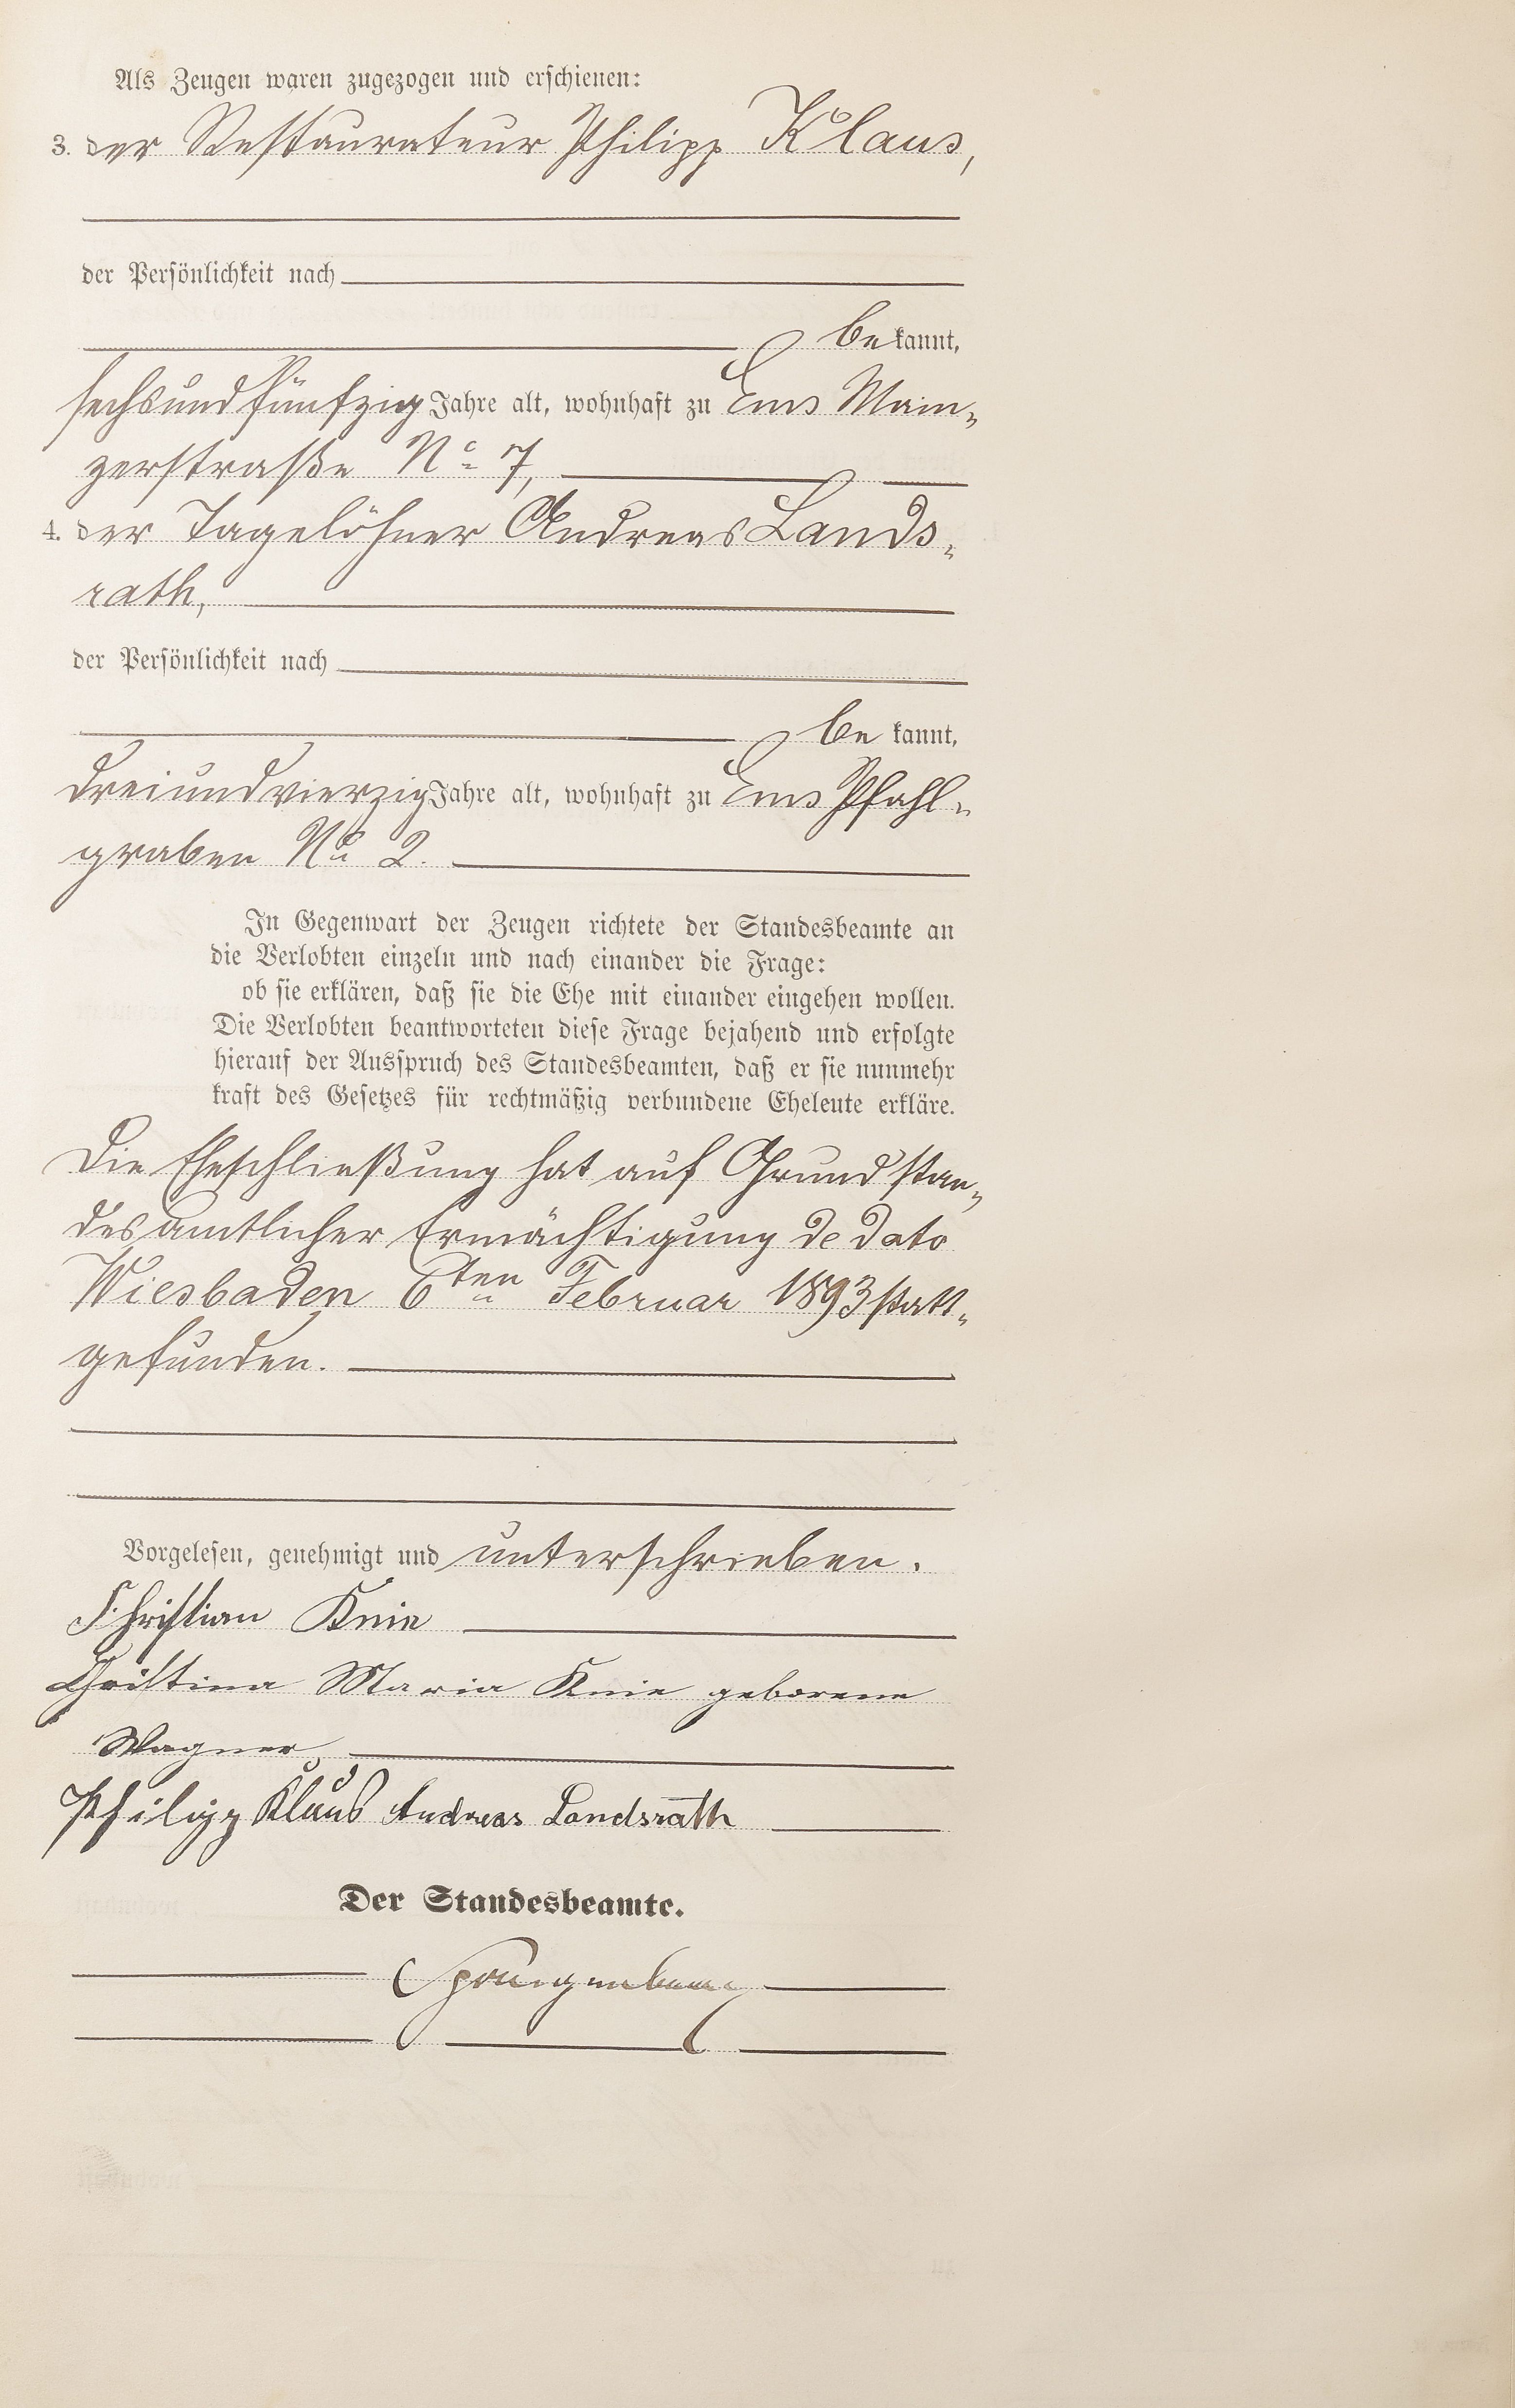 Als Zeugen waren zugezogen und erschienen:
3. der Restaurateur Philipp Klaus,
der Persönlichkeit nach
bekannt,
sechsundfünfzig Jahre alt, wohnhaft zu Ems Main-
zerstraße No 7,
4. der Tagelöhner Andreas Lands-
rath,
der Persönlichkeit nach
be kannt,
dreiundvierzig Jahre alt, wohnhaft zu Ems Pfahl-
graben No 2.
In Gegenwart der Zeugen richtete der Standesbeamte an
die Verlobten einzeln und nach einander die Frage:
ob sie erklären, daß sie die Ehe mit einander eingehen wollen.
Die Verlobten beantworteten diese Frage bejahend und erfolgte
hierauf der Ausspruch des Standesbeamten, daß er sie nunmehr
kraft des Gesetzes für rechtmäßig verbundene Eheleute erkläre.
Die Eheschließung hat auf Grund stan-
desamtlicher Ermächtigung de dato
Wiesbaden 6ten Februar 1893 statt-
gefunden.
Vorgelesen, genehmigt und unterschrieben.
Christian Knie
Christina Maria Knie geborene
Wagner
Philipp Klaus Andreas Landsrath
Der Standesbeamte.
Spangenberg